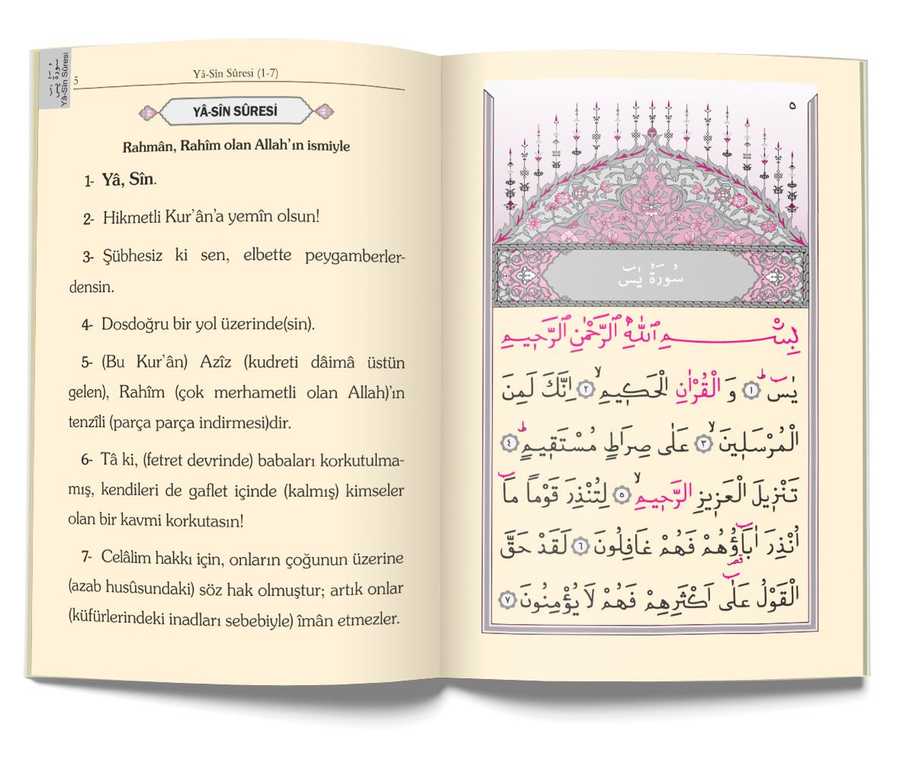 سورة يس
Yâ-Sîn Sûresi
5
Yâ-Sîn Sûresi (1-7)
YÂ-SÎN SÛRESİ
Rahmân, Rahîm olan Allah’ın ismiyle
1- Yâ, Sîn.
2- Hikmetli Kur’ân’a yemîn olsun!
3- Şübhesiz ki sen, elbette peygamberler-
densin.
4- Dosdoğru bir yol üzerinde(sin).
5- (Bu Kur’ân) Azîz (kudreti dâimâ üstün
gelen), Rahîm (çok merhametli olan Allah)’ın
tenzîli (parça parça indirmesi)dir.
6- Tâ ki, (fetret devrinde) babaları korkutulma-
mış, kendileri de gaflet içinde (kalmış) kimseler
olan bir kavmi korkutasın!
7- Celâlim hakkı için, onların çoğunun üzerine
(azab husûsundaki) söz hak olmuştur; artık onlar
(küfürlerindeki inadları sebebiyle) îmân etmezler.
٥
سُورَةُ يٰسٓ
بِسْمِ اللّٰهِ الرَّحْمٰنِ الرَّحِيمِ
يٰسٓ ۚ ﴿١﴾ وَ الْقُرْاٰنِ الْحَكِيمِ ۙ ﴿٢﴾ اِنَّكَ لَمِنَ
الْمُرْسَلِينَ ۙ ﴿٣﴾ عَلٰى صِرَاطٍ مُسْتَقِيمٍ ۜ ﴿٤﴾
تَنْزِيلَ الْعَزِيزِ الرَّحِيمِ ۙ ﴿٥﴾ لِتُنْذِرَ قَوْمًا مَٓا
اُنْذِرَ اٰبَٓاؤُهُمْ فَهُمْ غَافِلُونَ ﴿٦﴾ لَقَدْ حَقَّ
الْقَوْلُ عَلٰٓى اَكْثَرِهِمْ فَهُمْ لَا يُؤْمِنُونَ ﴿٧﴾